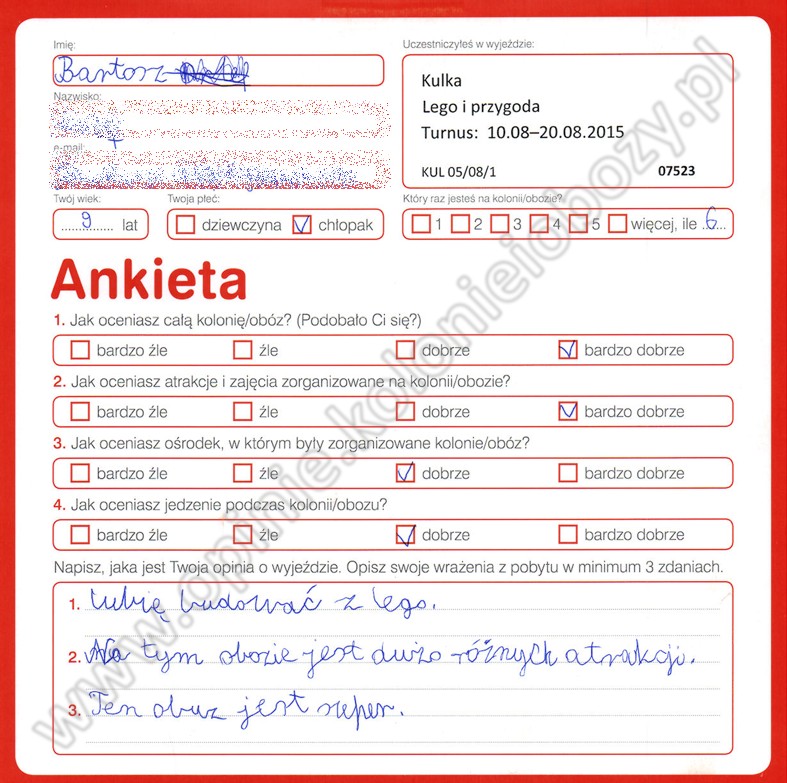 Imię:
Bartosz
Nazwisko:
e-mail:
Uczestniczyłeś w wyjeździe:
Kulka
Lego i przygoda
Turnus: 10.08–20.08.2015
KUL 05/08/1 07523
Twój wiek:
9 lat
Twoja płeć:
dziewczyna chłopak
Który raz jesteś na kolonii/obozie?
1 2 3 4 5 więcej, ile 6
Ankieta
1. Jak oceniasz całą kolonię/obóz? (Podobało Ci się?)
bardzo źle źle dobrze bardzo dobrze
2. Jak oceniasz atrakcje i zajęcia zorganizowane na kolonii/obozie?
bardzo źle źle dobrze bardzo dobrze
3. Jak oceniasz ośrodek, w którym były zorganizowane kolonie/obóz?
bardzo źle źle dobrze bardzo dobrze
4. Jak oceniasz jedzenie podczas kolonii/obozu?
bardzo źle źle dobrze bardzo dobrze
Napisz, jaka jest Twoja opinia o wyjeździe. Opisz swoje wrażenia z pobytu w minimum 3 zdaniach.
1. Lubię budować z lego.
2. Na tym obozie jest dużo różnych atrakcji.
3. Ten obuz jest super.
www.opinie.kolonieiobozy.pl